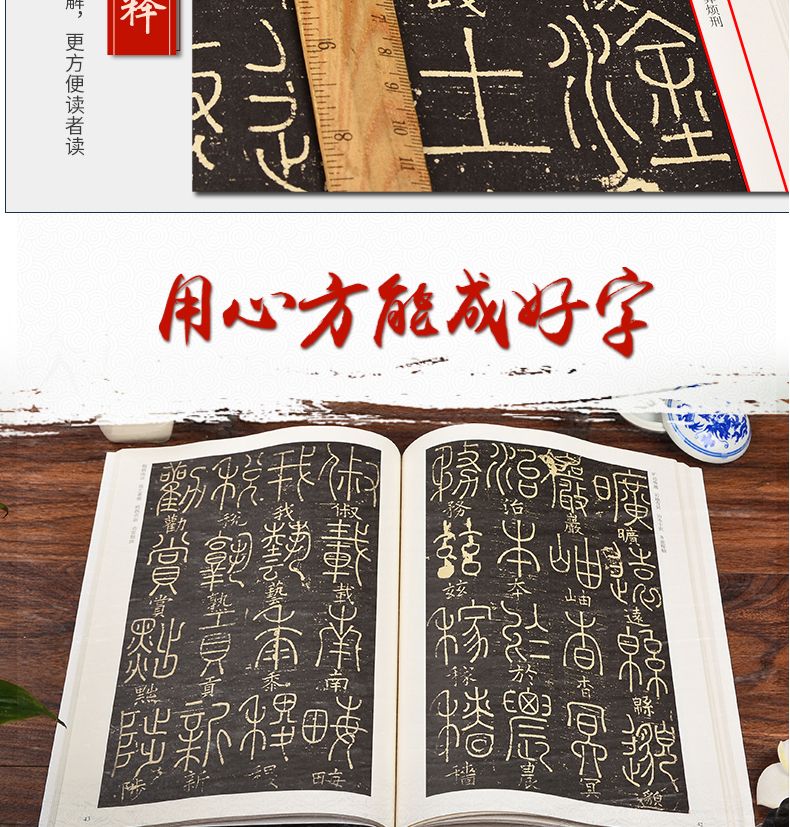 解，更方便读者读
释
塗
土
烦刑
6
8
10
11
用心方能成好字
曠遠緜邈
巖岫杳冥
治本於農
務茲稼穡
俶載南畝
我藝黍稷
稅熟貢新
勸賞黜陟
43